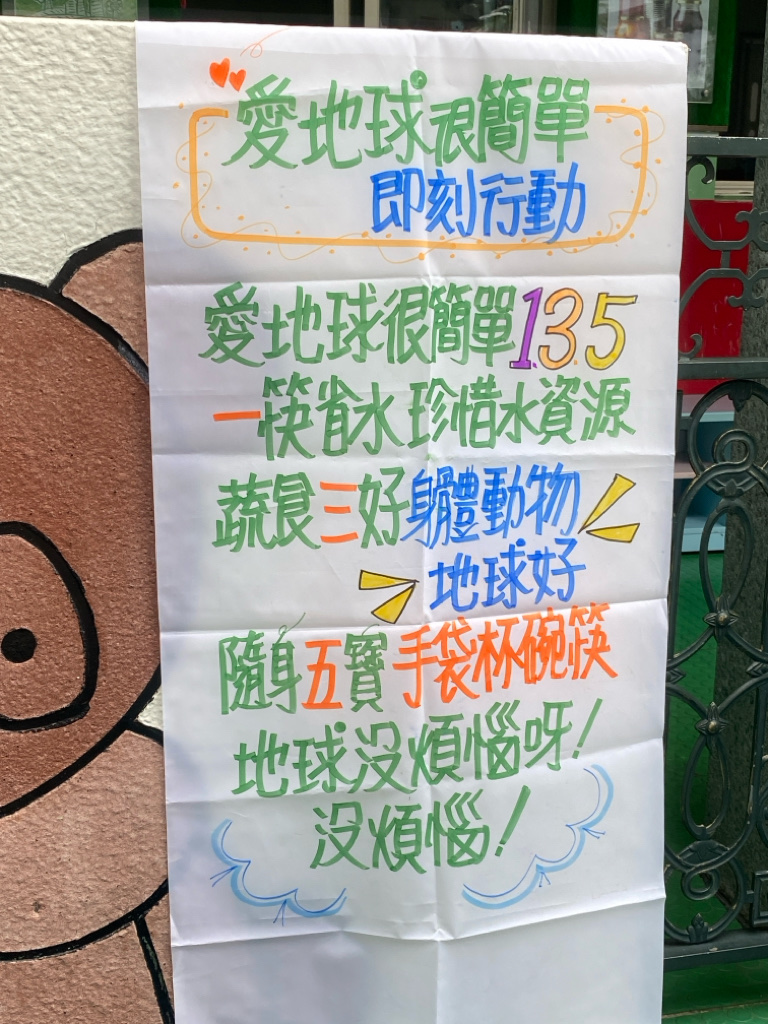 愛地球很簡單
即刻行動
愛地球很簡單1.3.5
一筷省水珍惜水資源
蔬食三好身體動物
地球好
隨身五寶手袋杯碗筷
地球沒煩惱呀!
沒煩惱!